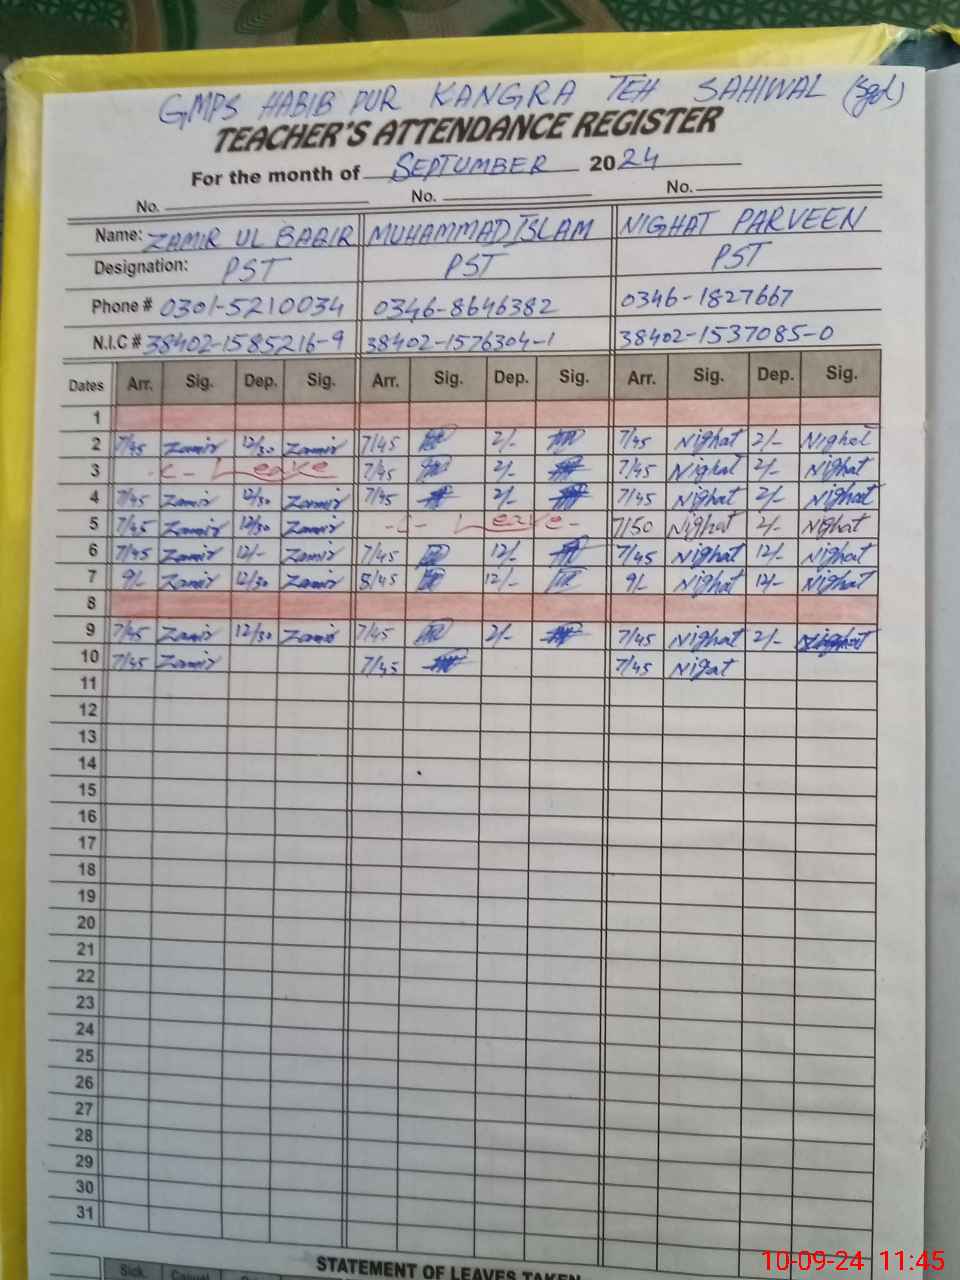 GMPS HABIB PUR KANGRA TEH SAHIWAL (Sgd)
TEACHER'S ATTENDANCE REGISTER
For the month of SEPTUMBER 2024
No. No. No.
Name: ZAMIR UL BAQIR MUHAMMAD ISLAM NIGHAT PARVEEN
Designation: PST PST PST
Phone # 0301-5210034 0346-8646382 0346-1827667
N.I.C # 38402-1585216-9 38402-1576304-1 38402-1537085-0
Dates Arr. Sig. Dep. Sig. Arr. Sig. Dep. Sig. Arr. Sig. Dep. Sig.
1
2 7/45 Zamir 12/30 Zamir 7/45 2/- 7/45 Nighat 2/- Nighat
3 -C- Leave 7/45 2/- 7/45 Nighat 2/- Nighat
4 7/45 Zamir 12/30 Zamir 7/45 2/- 7/45 Nighat 2/- Nighat
5 7/45 Zamir 12/30 Zamir -C- Leave- 7/50 Nighat 2/- Nighat
6 7/45 Zamir 12/- Zamir 7/45 12/- 7/45 Nighat 12/- Nighat
7 9/- Zamir 12/30 Zamir 12/- 9/- Nighat 12/- Nighat
8
9 7/45 Zamir 12/30 Zamir 7/45 2/- 7/45 Nighat 2/- Nighat
10 7/45 Zamir 7/45 7/45 Nigat
11
12
13
14
15
16
17
18
19
20
21
22
23
24
25
26
27
28
29
30
31
STATEMENT OF LEAVES TAKEN
Sick. Casual
10-09-24 11:45